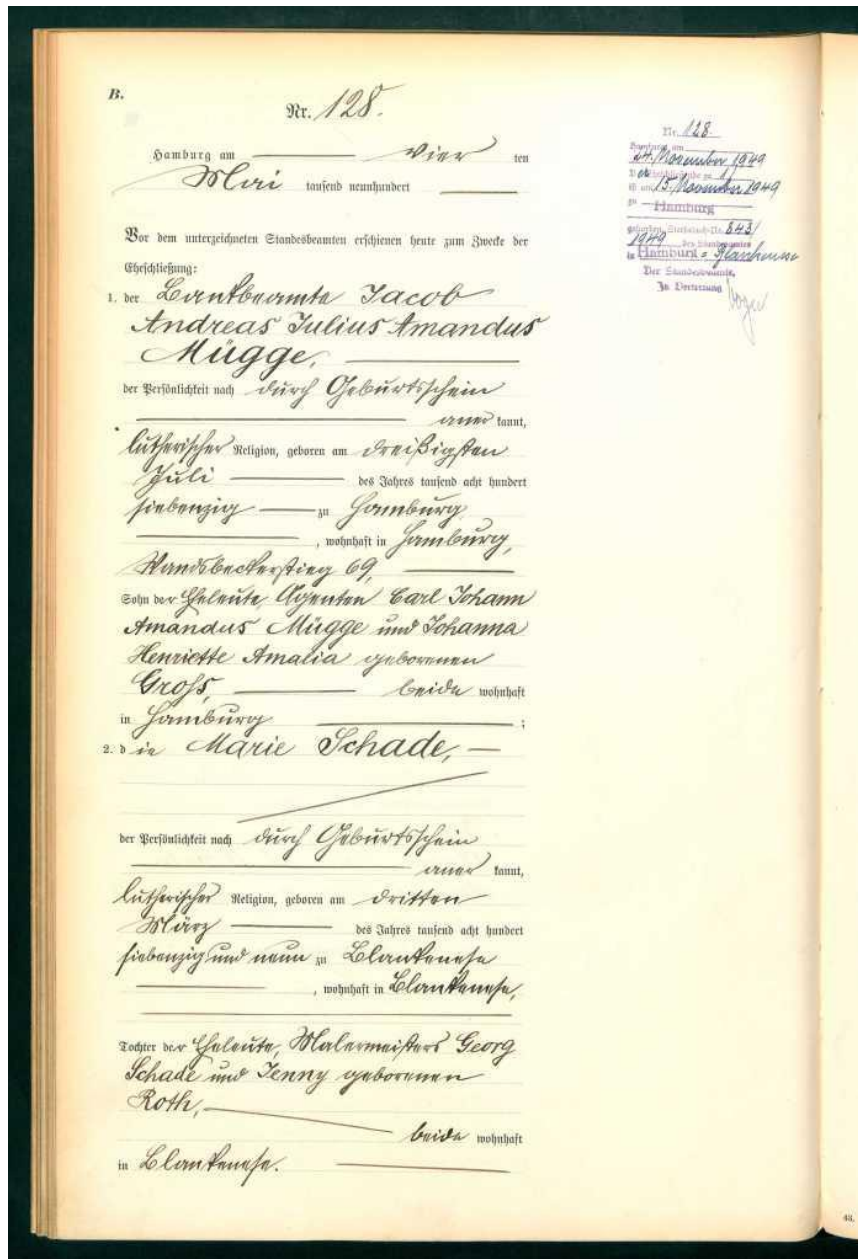 B.
Nr. 128.
Hamburg am vier ten
Mai tausend neunhundert
Vor dem unterzeichneten Standesbeamten erschienen heute zum Zwecke der
Eheschließung:
1. der Bankbeamte Jacob
Andreas Julius Amandus
Mügge,
der Persönlichkeit nach durch Geburtsschein
aner kannt,
lutherischer Religion, geboren am dreißigsten
Juli des Jahres tausend acht hundert
siebenzig zu Hamburg
, wohnhaft in Hamburg,
Wandsbeckerstieg 69,
Sohn der Eheleute, Agenten Carl Johann
Amandus Mügge und Johanna
Henriette Amalia geborenen
Groß, beide wohnhaft
in Hamburg ;
2. die Marie Schade,
der Persönlichkeit nach durch Geburtsschein
aner kannt,
lutherischer Religion, geboren am dritten
März des Jahres tausend acht hundert
siebenzig und neun zu Blankenese
, wohnhaft in Blankenese,
Tochter der Eheleute, Malermeisters Georg
Schade und Jenny geborenen
Roth,
beide wohnhaft
in Blankenese.
Nr. 128
Hamburg am
24. November 1949
ist am 15. November 1949
zu Hamburg
gestorben, Sterbebuch-Nr. 843/
1949 des Standesamtes
in Hamburg - Blankenese
Der Standesbeamte,
In Vertretung
43.